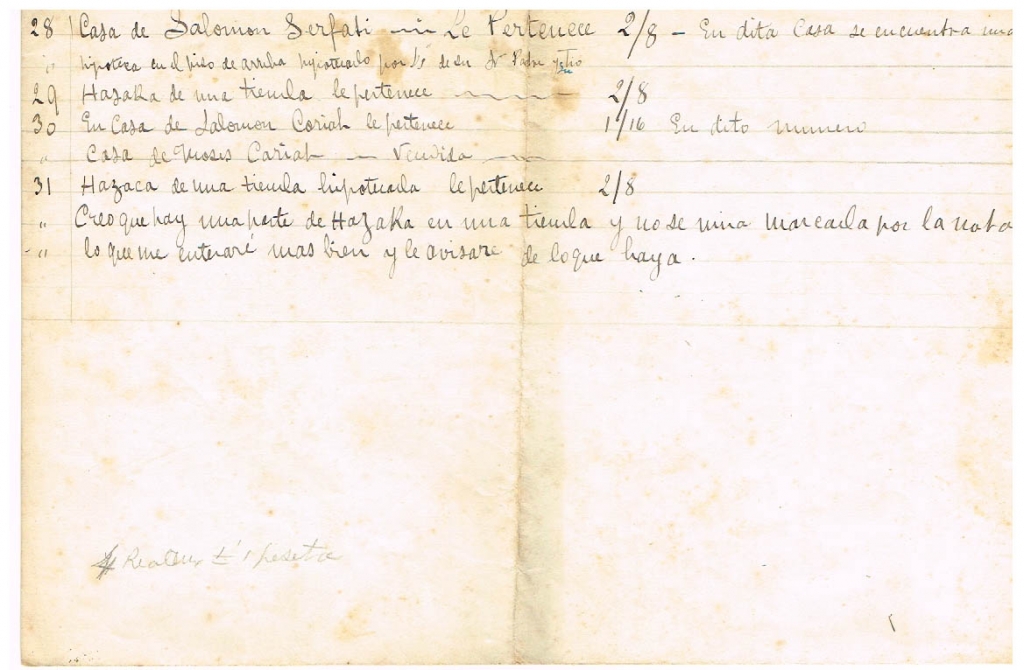 28 Casa de Salomon Serfati — Le Pertenece 2/8 – En dita Casa se encuentra una
" hipoteca en el piso de arriba hipotecado por de su Sr Padre y Tio
29 Hazaka de una tienda le pertenece — 2/8
30 En Casa de Salomon Coriah le pertenece 1/16 En dito numero
" Casa de Moses Cariah — Vendida —
31 Hazaca de una tienda hipotecada le pertenece 2/8
" Creo que hay una parte de Hazaka en una tienda y no se mira marcada por la nota
" lo que me enteraré mas bien y le avisare de lo que haya.
4 Reales 1 peseta